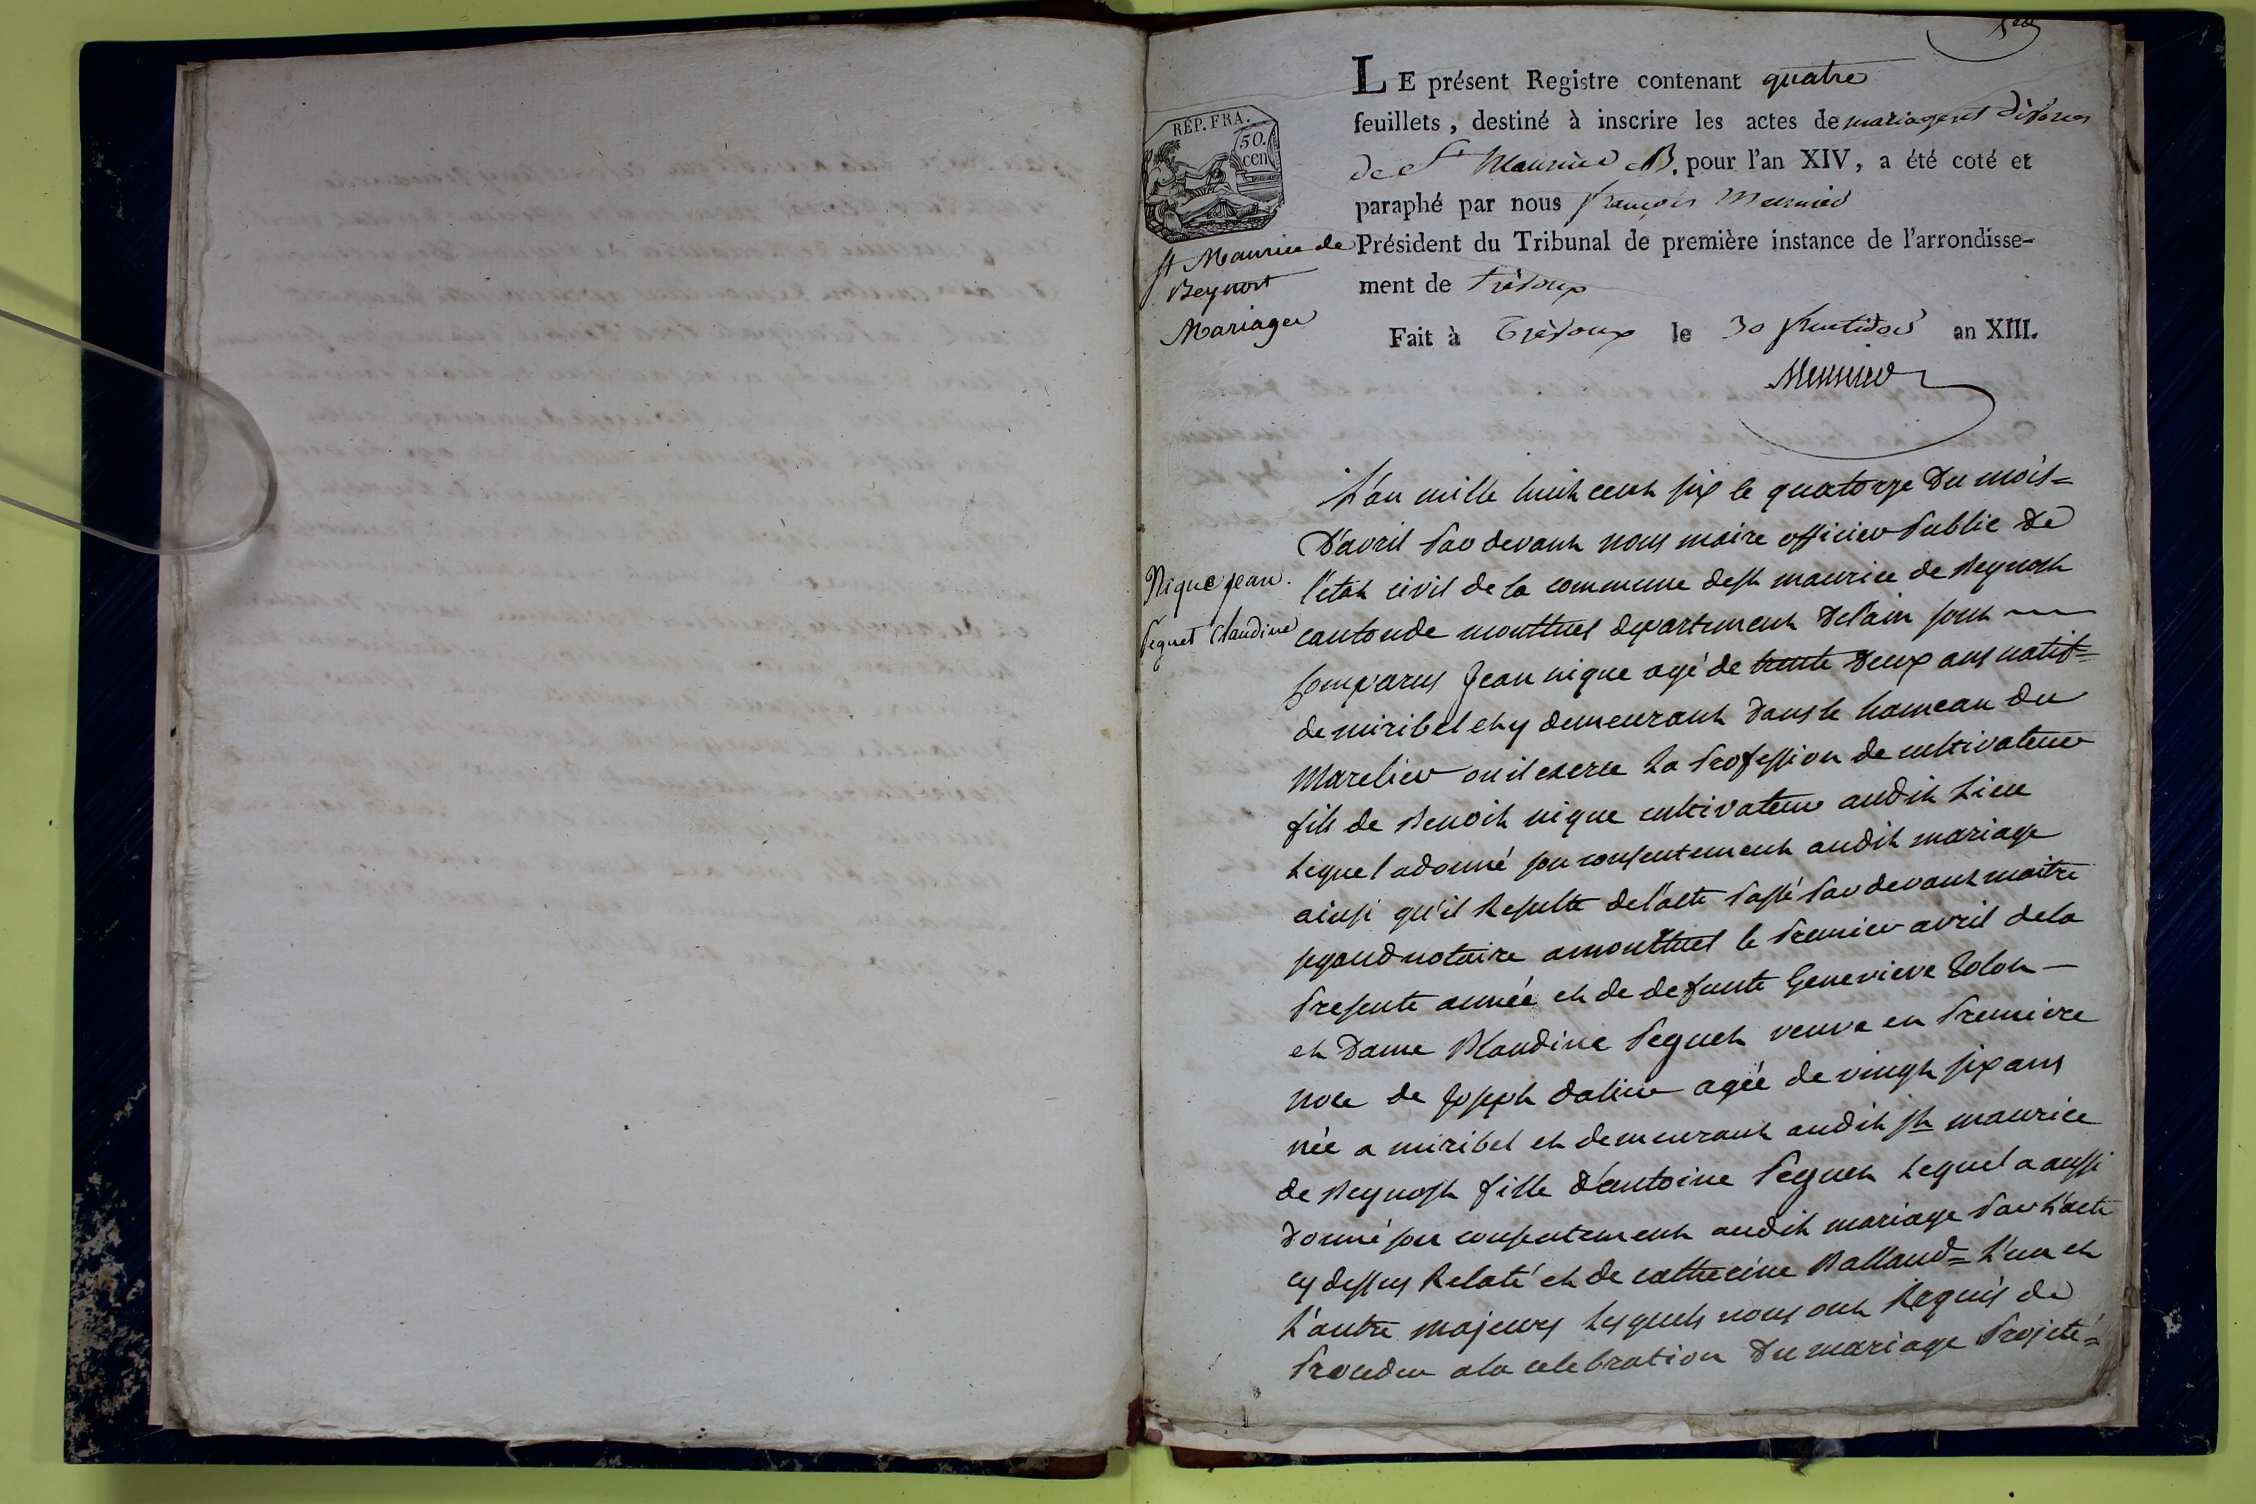 1er
LE présent Registre contenant quatre
feuillets, destiné à inscrire les actes de mariages et divorces
de St Maurice B. pour l'an XIV, a été coté et
paraphé par nous françois Meunier
Président du Tribunal de première instance de l'arrondisse-
ment de trévoux
Fait à Trévoux le 30 fructidor an XIII.
Meunier
RÉP. FRA.
50.
cen
st Maurice de
Beynost
Mariages
Nique jean.
peguet Claudine
L'an mille huit cent six le quatorze Du mois=
D'avril par devant nous maire officier public de
l'etat civil de la commune de st maurice de Beynost
canton de montluel departement De l'ain sont
comparus Jean nique agé de trente Deux ans natif=
de miribel et y demeurant Dans le hameau du
Mavelier ou il exerce la profession de cultivateur
fils de Benoit nique cultivateur audit Lieu
Lequel a donné son consentement audit mariage
ainsi qu'il Resulte de l'acte passé par devant maitre
segaud notaire a montluel le premier avril de la
presente année et de defunte Genevieve Colon —
et Dame Claudine peguet veuve en premiere
noce de joseph dalin agée de vingt six ans
née a miribel et demeurant audit st maurice
de Beynost fille d'antoine peguet Lequel a aussi
Donné son consentement audit mariage par L'acte
cy dessus Relaté et de catherine Balland= L'un et
L'autre majeurs Lesquels nous ont Requis de
proceder a la celebration Du mariage projeté=
1